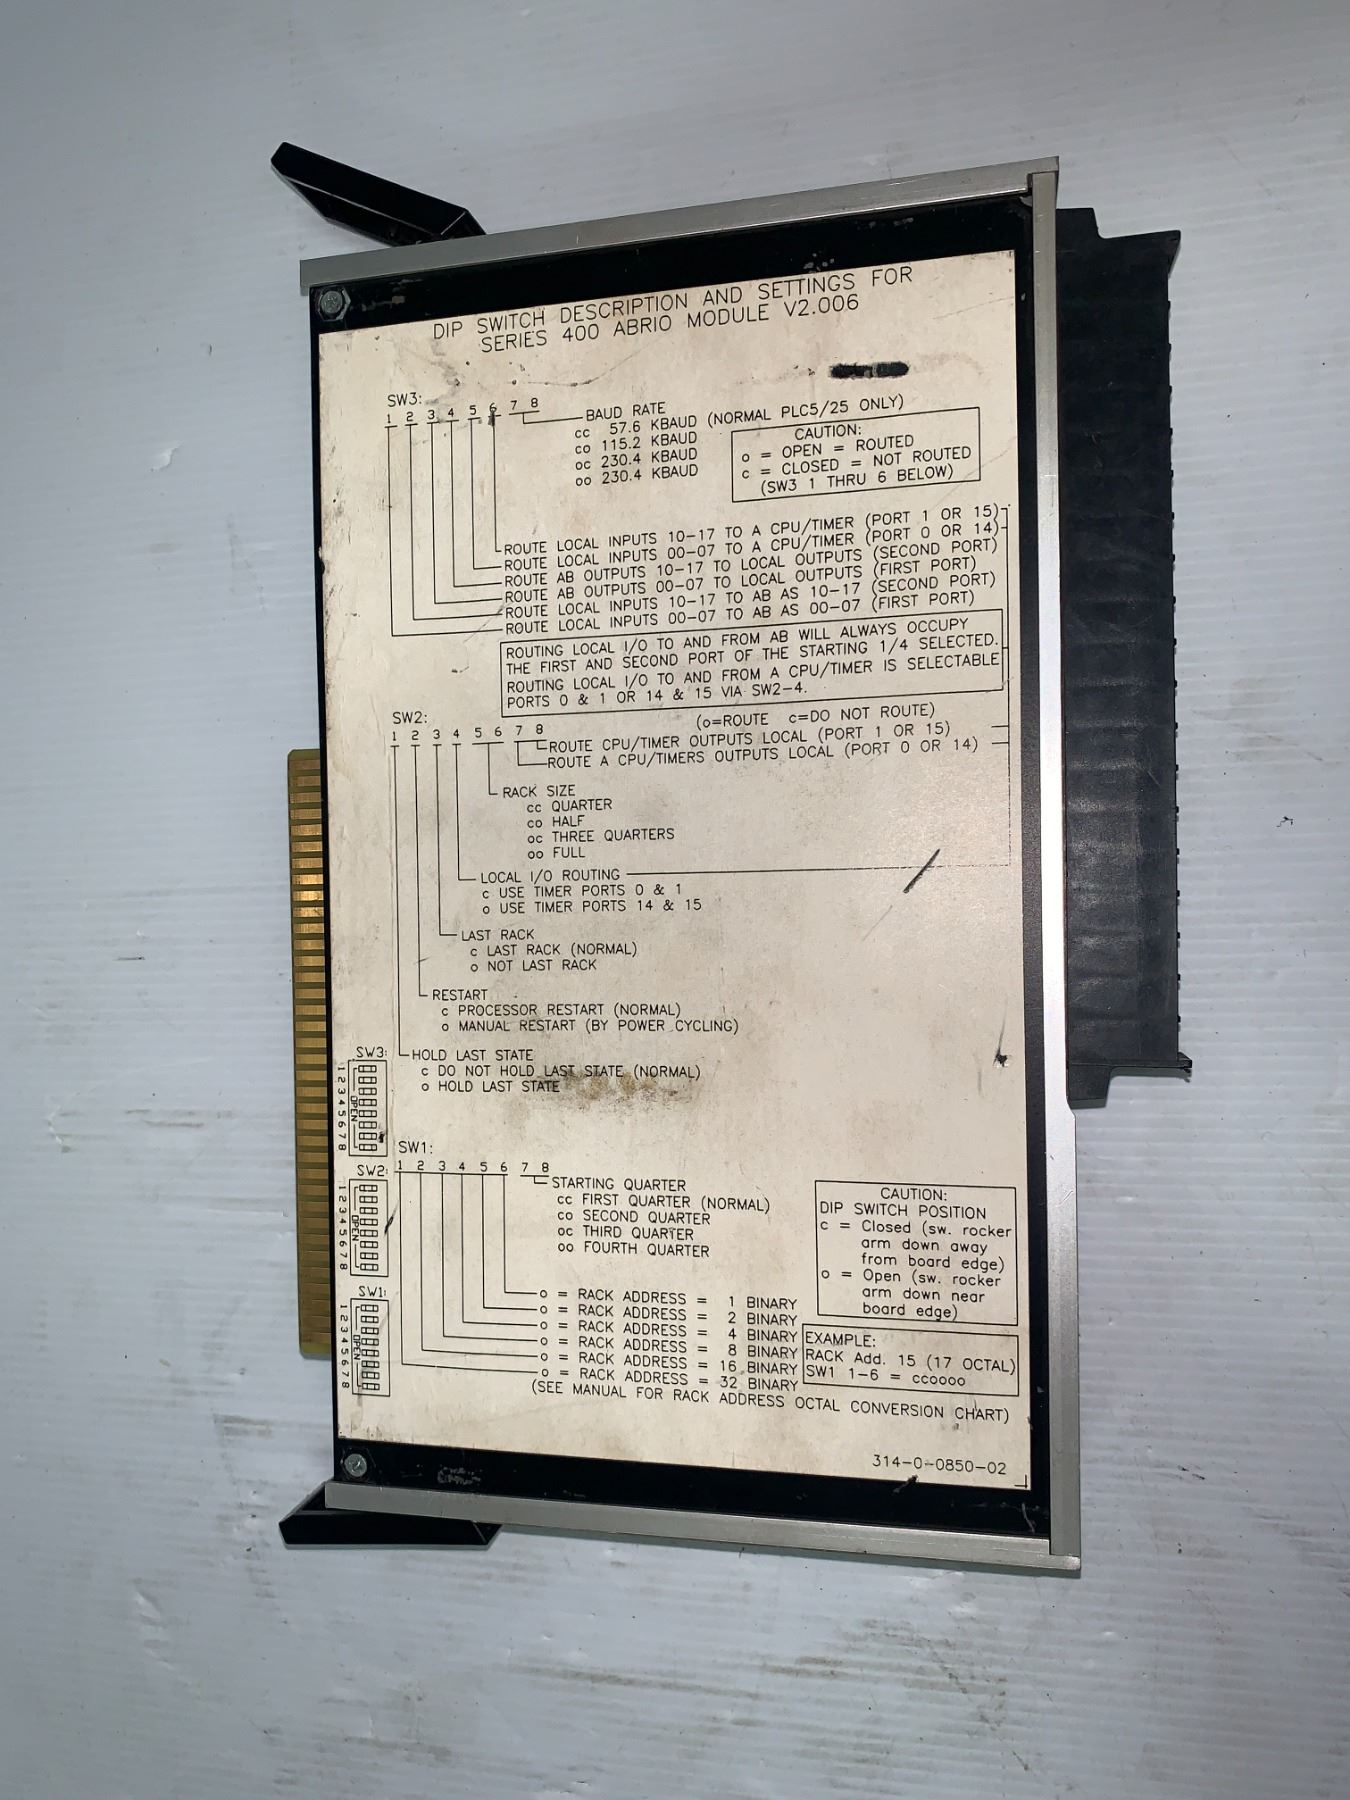 DIP SWITCH DESCRIPTION AND SETTINGS FOR
SERIES 400 ABRIO MODULE V2.006
SW3:
1 2 3 4 5 6 7 8
BAUD RATE
cc 57.6 KBAUD (NORMAL PLC5/25 ONLY)
co 115.2 KBAUD
oc 230.4 KBAUD
oo 230.4 KBAUD
CAUTION:
o = OPEN = ROUTED
c = CLOSED = NOT ROUTED
(SW3 1 THRU 6 BELOW)
ROUTE LOCAL INPUTS 10-17 TO A CPU/TIMER (PORT 1 OR 15)
ROUTE LOCAL INPUTS 00-07 TO A CPU/TIMER (PORT 0 OR 14)
ROUTE AB OUTPUTS 10-17 TO LOCAL OUTPUTS (SECOND PORT)
ROUTE AB OUTPUTS 00-07 TO LOCAL OUTPUTS (FIRST PORT)
ROUTE LOCAL INPUTS 10-17 TO AB AS 10-17 (SECOND PORT)
ROUTE LOCAL INPUTS 00-07 TO AB AS 00-07 (FIRST PORT)
ROUTING LOCAL I/O TO AND FROM AB WILL ALWAYS OCCUPY
THE FIRST AND SECOND PORT OF THE STARTING 1/4 SELECTED.
ROUTING LOCAL I/O TO AND FROM A CPU/TIMER IS SELECTABLE
PORTS 0 & 1 OR 14 & 15 VIA SW2-4.
SW2:
1 2 3 4 5 6 7 8
(o=ROUTE c=DO NOT ROUTE)
ROUTE CPU/TIMER OUTPUTS LOCAL (PORT 1 OR 15)
ROUTE A CPU/TIMERS OUTPUTS LOCAL (PORT 0 OR 14)
RACK SIZE
cc QUARTER
co HALF
oc THREE QUARTERS
oo FULL
LOCAL I/O ROUTING
c USE TIMER PORTS 0 & 1
o USE TIMER PORTS 14 & 15
LAST RACK
c LAST RACK (NORMAL)
o NOT LAST RACK
RESTART
c PROCESSOR RESTART (NORMAL)
o MANUAL RESTART (BY POWER CYCLING)
HOLD LAST STATE
c DO NOT HOLD LAST STATE (NORMAL)
o HOLD LAST STATE
SW3:
1 2 3 4 5 6 7 8
OPEN
SW2:
1 2 3 4 5 6 7 8
OPEN
SW1:
1 2 3 4 5 6 7 8
OPEN
SW1:
1 2 3 4 5 6 7 8
STARTING QUARTER
cc FIRST QUARTER (NORMAL)
co SECOND QUARTER
oc THIRD QUARTER
oo FOURTH QUARTER
o = RACK ADDRESS = 1 BINARY
o = RACK ADDRESS = 2 BINARY
o = RACK ADDRESS = 4 BINARY
o = RACK ADDRESS = 8 BINARY
o = RACK ADDRESS = 16 BINARY
o = RACK ADDRESS = 32 BINARY
(SEE MANUAL FOR RACK ADDRESS OCTAL CONVERSION CHART)
CAUTION:
DIP SWITCH POSITION
c = Closed (sw. rocker
arm down away
from board edge)
o = Open (sw. rocker
arm down near
board edge)
EXAMPLE:
RACK Add. 15 (17 OCTAL)
SW1 1-6 = ccoooo
314-0-0850-02